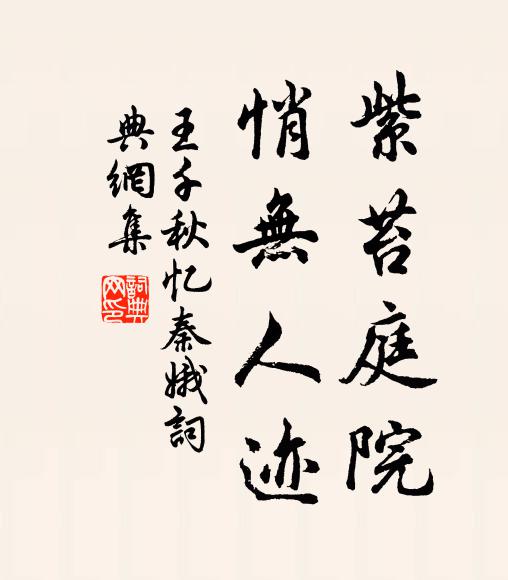 紫苔庭院
悄無人迹
王千秋忆秦娥詞
典網集
詞典网印